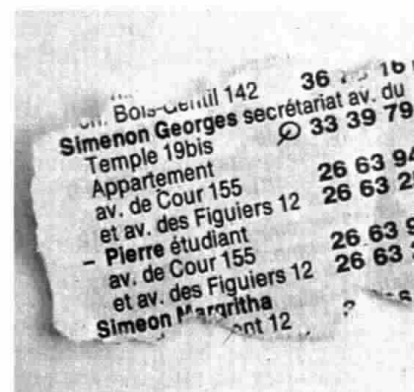 ch. Bois-Gentil 142 36 16
Simenon Georges secrétariat av. du
Temple 19bis 33 39 79
Appartement
av. de Cour 155 26 63 94
et av. des Figuiers 12 26 63 2
– Pierre étudiant
av. de Cour 155 26 63 9
et av. des Figuiers 12 26 63
Simeon Margritha
12